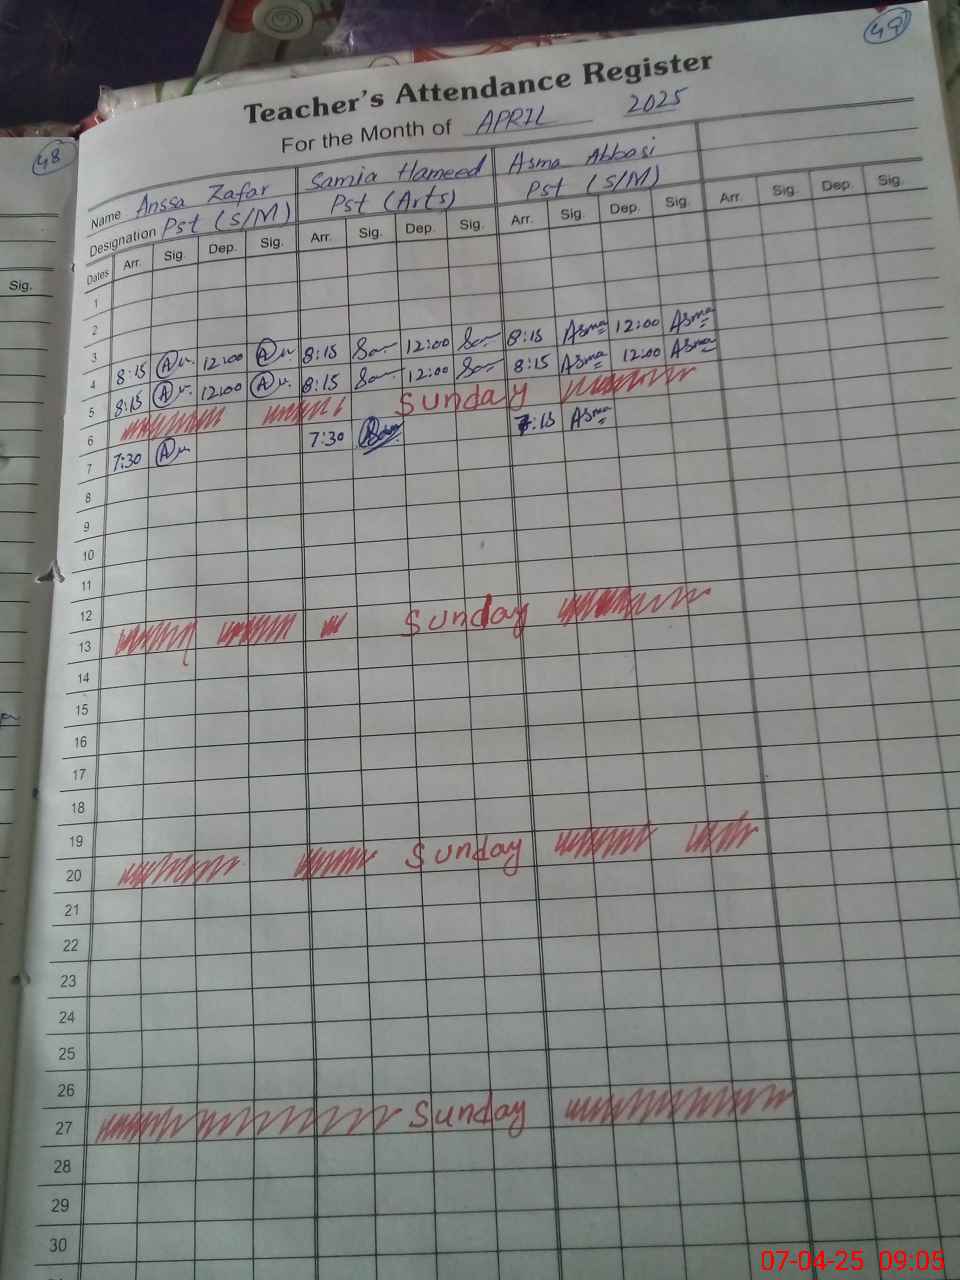 49
48
Teacher's Attendance Register
For the Month of APRIL 2025
Name Anssa Zafar Samia Hameed Asma Abbasi
Designation Pst (S/M) Pst (Arts) Pst (S/M)
Dates Arr. Sig. Dep. Sig. Arr. Sig. Dep. Sig. Arr. Sig. Dep. Sig. Arr. Sig. Dep. Sig.
Sig.
1
2
3
4 8:15 12:00 8:15 12:00 8:15 Asma 12:00 Asma
5 8:15 12:00 8:15 12:00 8:15 Asma 12:00 Asma
6 Sunday
7 7:30 7:30 7:15 Asma
8
9
10
11
12
13 Sunday
14
15
16
17
18
19
20 Sunday
21
22
23
24
25
26
27 Sunday
28
29
30
07-04-25 09:05